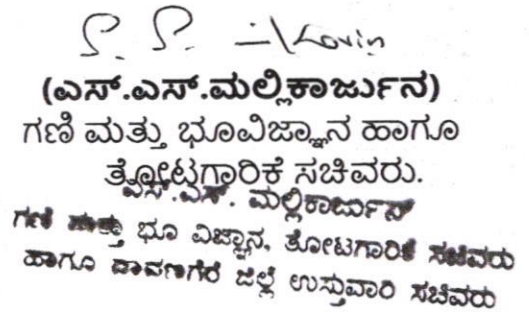 (ಎಸ್.ಎಸ್.ಮಲ್ಲಿಕಾರ್ಜುನ)
ಗಣಿ ಮತ್ತು ಭೂವಿಜ್ಞಾನ ಹಾಗೂ
ತೋಟಗಾರಿಕೆ ಸಚಿವರು.
ಎಸ್.ಎಸ್. ಮಲ್ಲಿಕಾರ್ಜುನ್
ಗಣಿ ಮತ್ತು ಭೂ ವಿಜ್ಞಾನ, ತೋಟಗಾರಿಕೆ ಸಚಿವರು
ಹಾಗೂ ದಾವಣಗೆರೆ ಜಿಲ್ಲೆ ಉಸ್ತುವಾರಿ ಸಚಿವರು